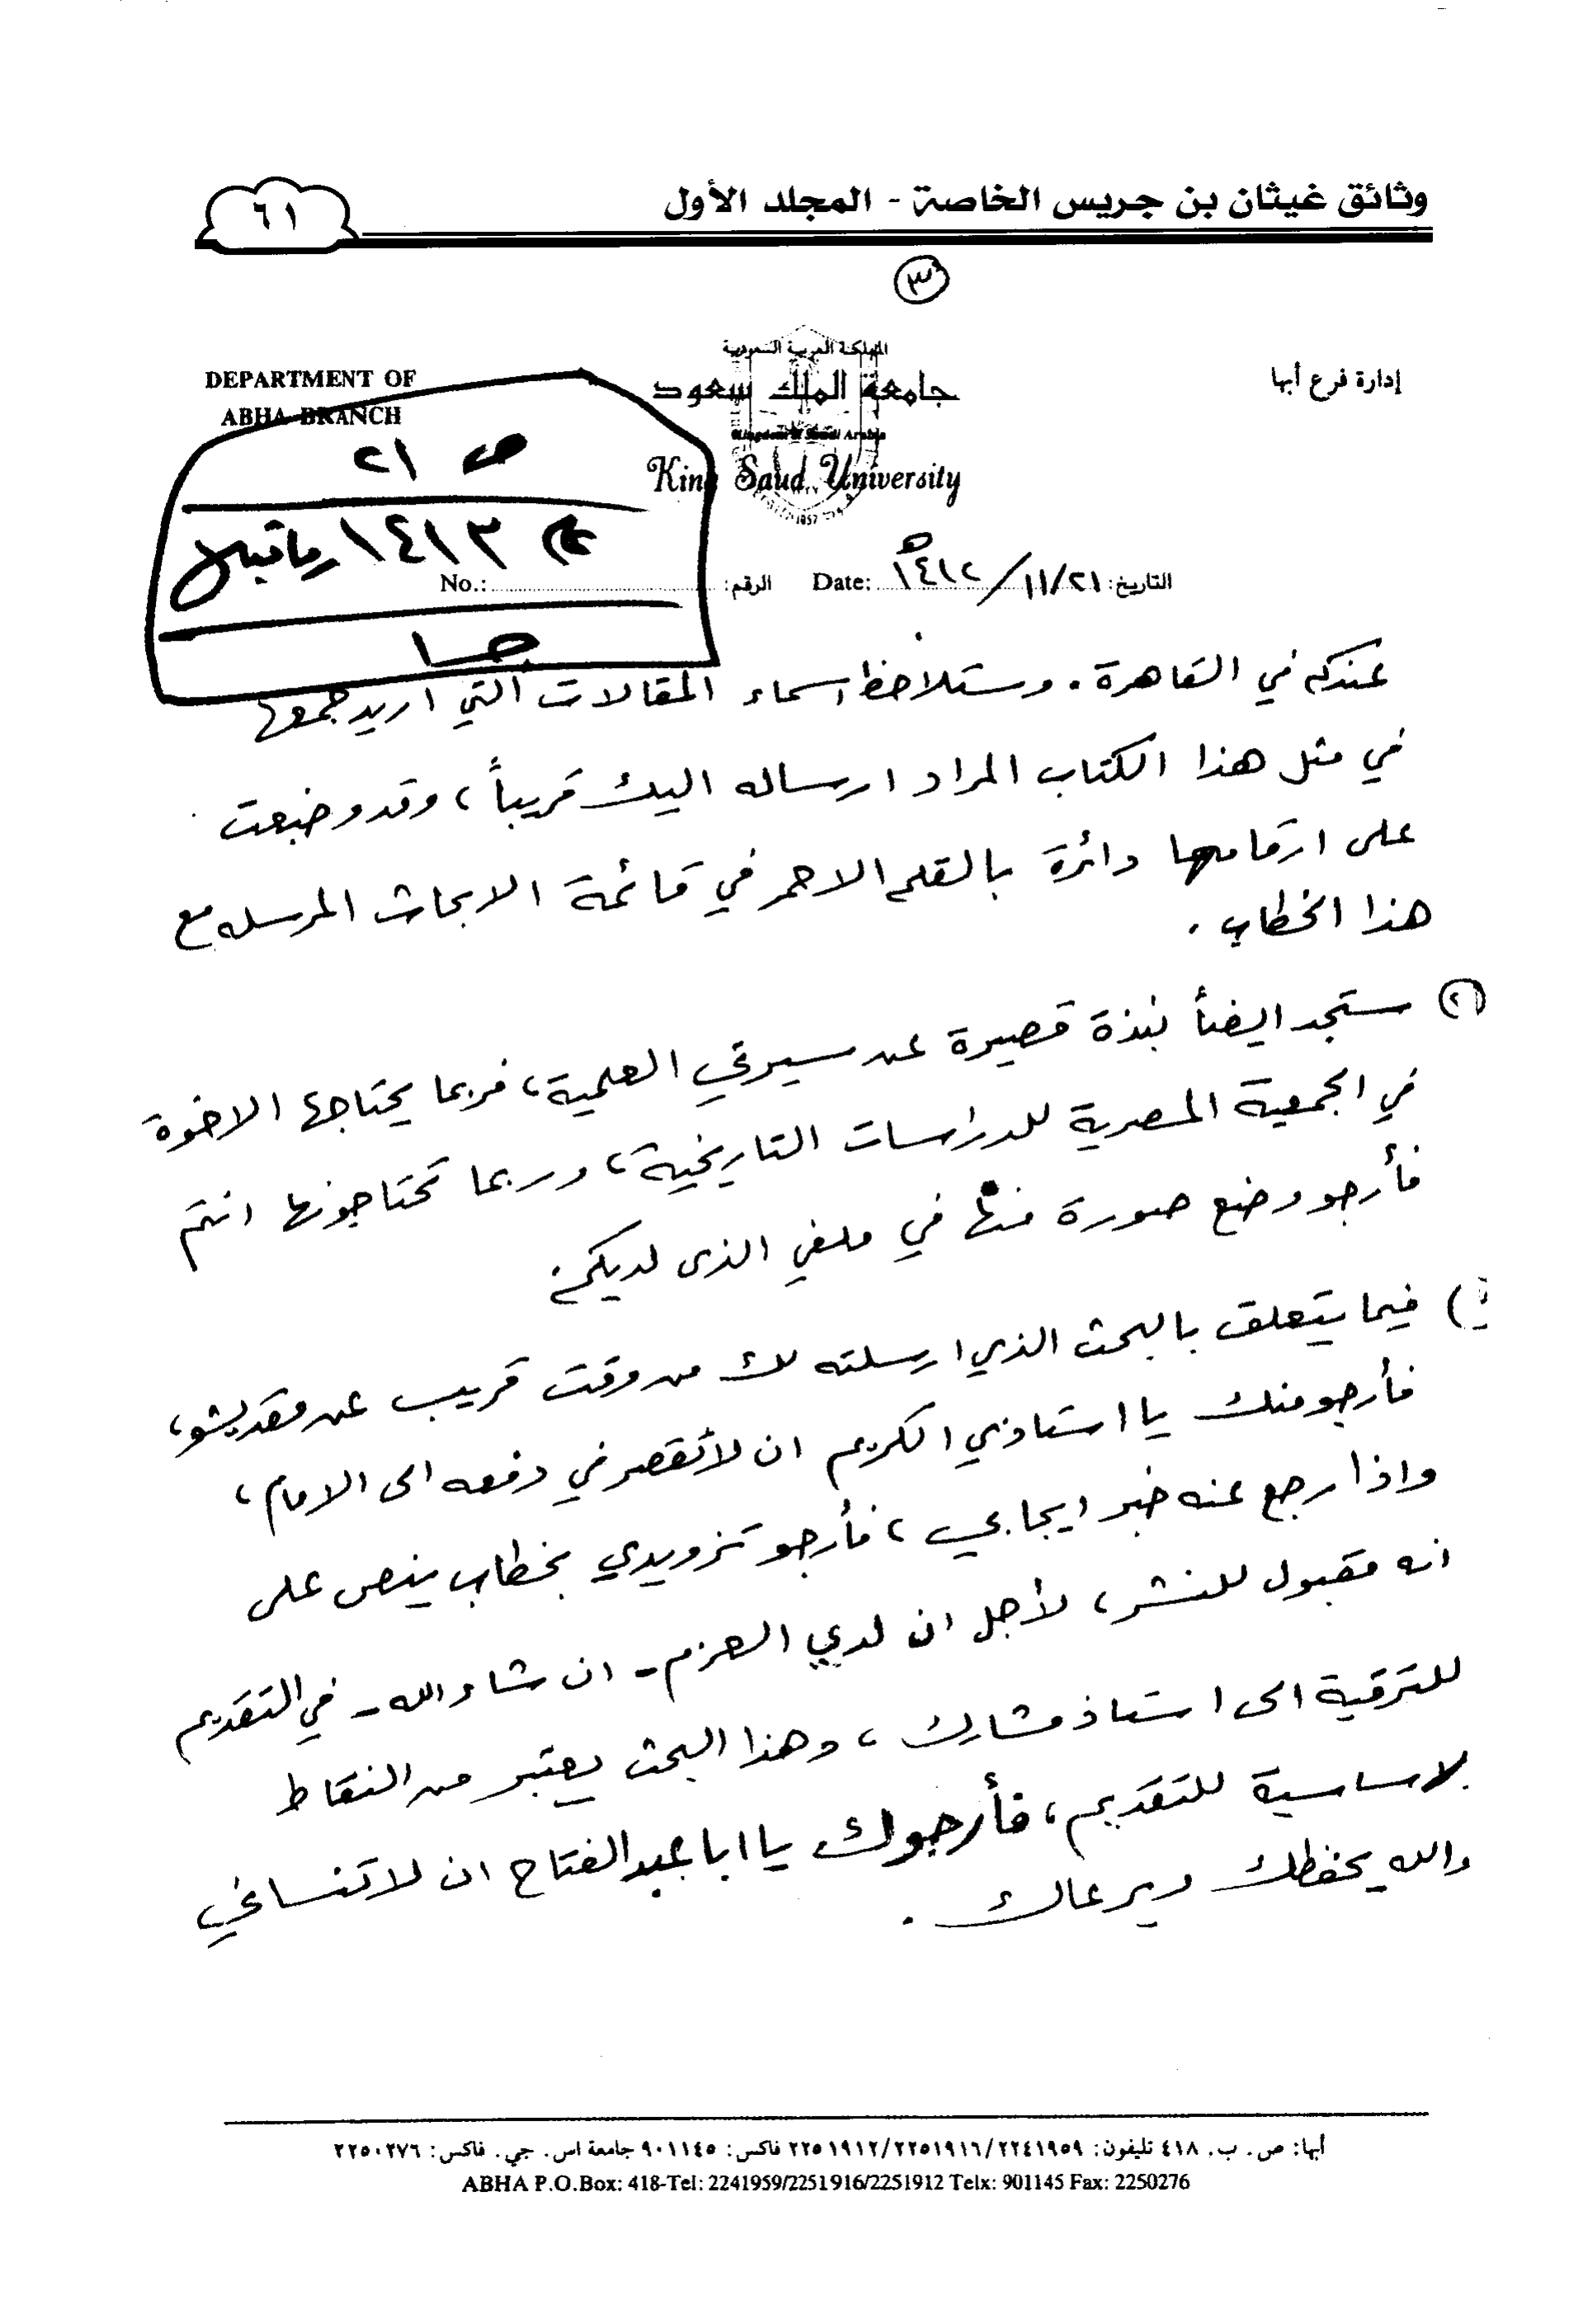 وثائق غيثان بن جريس الخاصة - المجلد الأول
٦١
٣
DEPARTMENT OF
ABHA BRANCH
المملكة العربية السعودية
جامعة الملك سعود
Kingdom of Saudi Arabia
King Saud University
1957
إدارة فرع أبها
ص ٢١
١٤١٣ وما قبل
التاريخ: ٢١/١١/١٤١٢ هـ Date:
الرقم: No.:
عندكم في القاهرة. وستلاحظ اسماء المقالات التي اريد جمعها
في مثل هذا الكتاب المراد ارساله اليك قريباً، وقد وضعت
على ارقامها دائرة بالقلم الاحمر في قائمة الابحاث المرسله مع
هذا الخطاب.
(٢) ستجد ايضاً نبذة قصيرة عن سيرتي العلمية، فربما يحتاجها الاخوة
في الجمعية المصرية للدراسات التاريخية، وربما تحتاجونها انتم
فأرجو وضع صورة منها في ملفي الذى لديكم.
) فيما يتعلق بالبحث الذي ارسلته لك من وقت قريب عن مقديشو،
فأرجو منك يا استاذي الكريم ان لا تقصر في دفعه الى الامام،
واذا رجع عنه خبر ايجابي، فأرجو تزويدي بخطاب ينص على
انه مقبول للنشر، لأجل ان لدي العزم - ان شاء الله - في التقديم
للترقية الى استاذ مشارك، وهذا البحث يعتبر من النقاط
الاساسية للتقديم، فأرجوك يا ابا عبدالفتاح ان لا تنساني
والله يحفظك ويرعاك.
أبها: ص. ب. ٤١٨ تليفون: ٢٢٤١٩٥٩/٢٢٥١٩١٦/٢٢٥١٩١٢ فاكس: ٩٠١١٤٥ جامعة اس. جي. فاكس: ٢٢٥٠٢٧٦
ABHA P.O.Box: 418-Tel: 2241959/2251916/2251912 Telx: 901145 Fax: 2250276